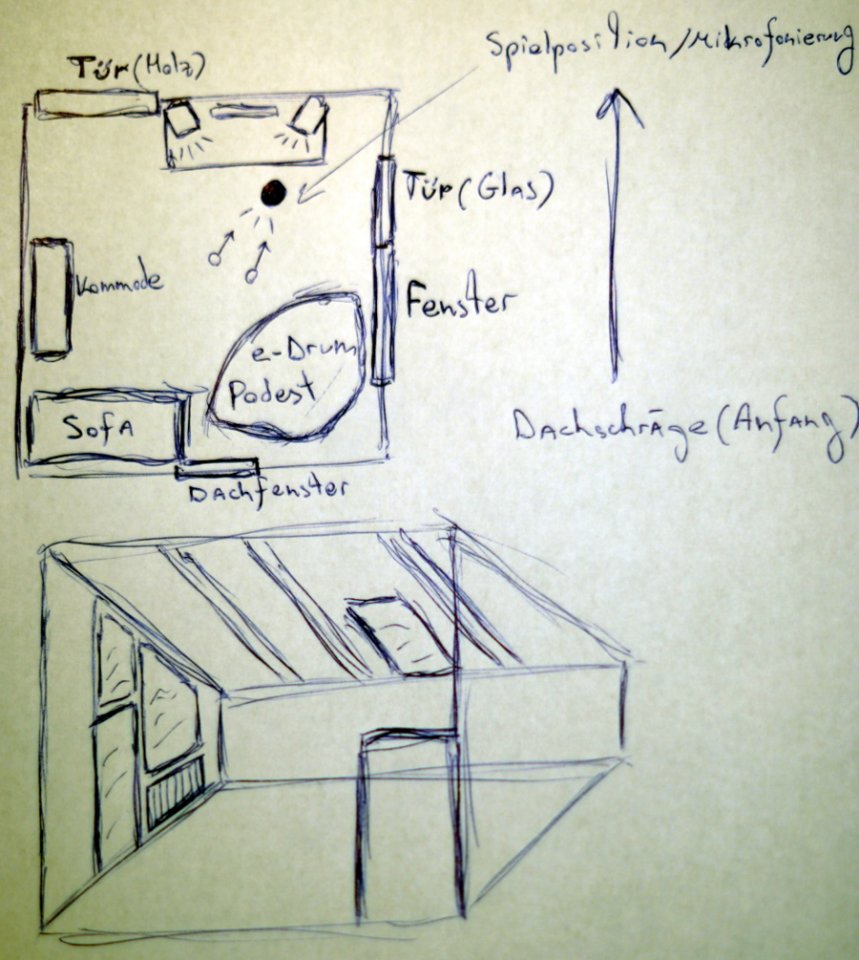 Spielposition/Mikrofonierung
Tür(Holz)
Tür(Glas)
Kommode
Fenster
e-Drum
Podest
Sofa
Dachschräge(Anfang)
Dachfenster